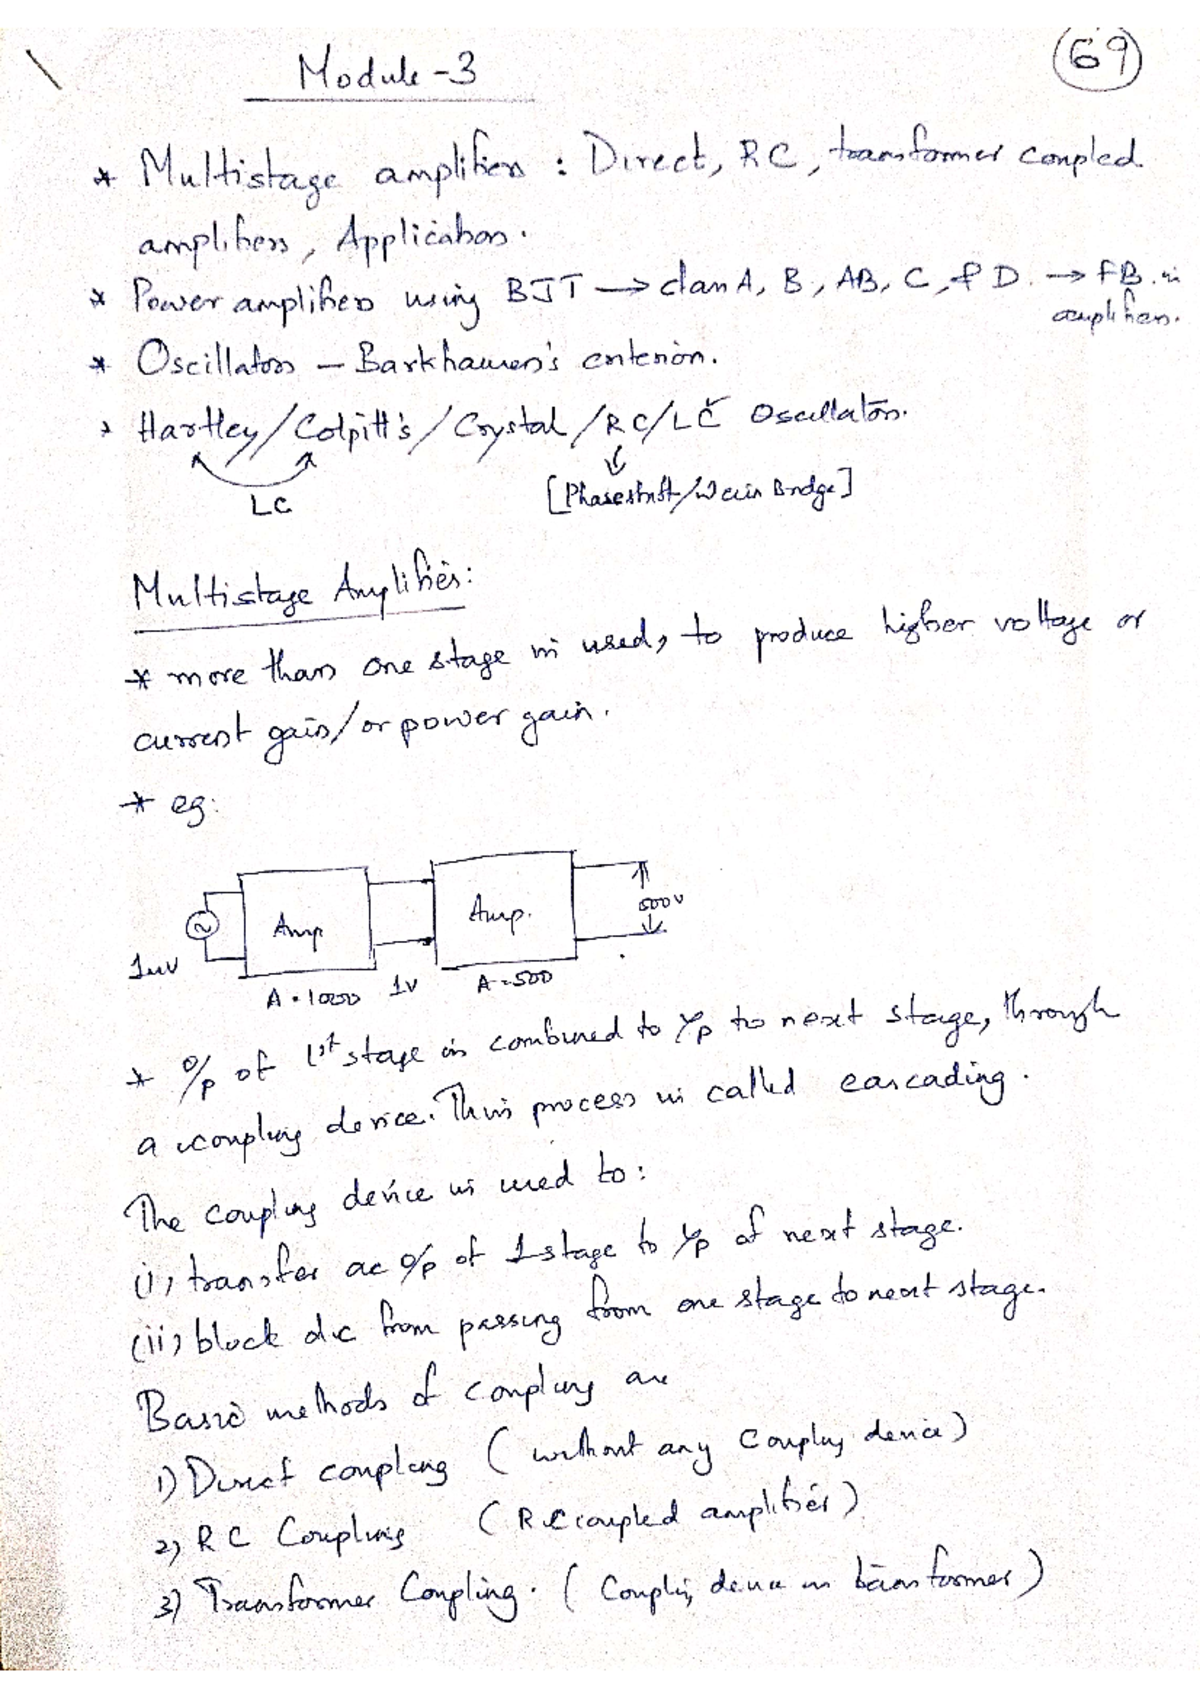 69
Module-3
* Multistage amplifiers : Direct, RC, transformer coupled
amplifiers, Applications.
* Power amplifiers using BJT → class A, B, AB, C, & D. → FB in
amplifiers.
* Oscillators – Barkhausen's criterion.
* Hartley/Colpitt's/Crystal/RC/LC Oscillators.
LC
[Phaseshift/Wein Bridge]
Multistage Amplifiers:
* more than one stage is used, to produce higher voltage or
current gain/or power gain.
* eg:
Amp
Amp.
500V
1mV
A = 1000
1V
A = 500
* O/p of 1st stage is combined to I/p to next stage, through
a coupling device. This process is called cascading.
The coupling device is used to:
(i) transfer ac o/p of 1 stage to I/p of next stage.
(ii) block dc from passing from one stage to next stage.
Basic methods of coupling are
1) Direct coupling ( without any coupling device)
2) RC Coupling ( RC coupled amplifier)
3) Transformer Coupling. ( Coupling device is transformer)